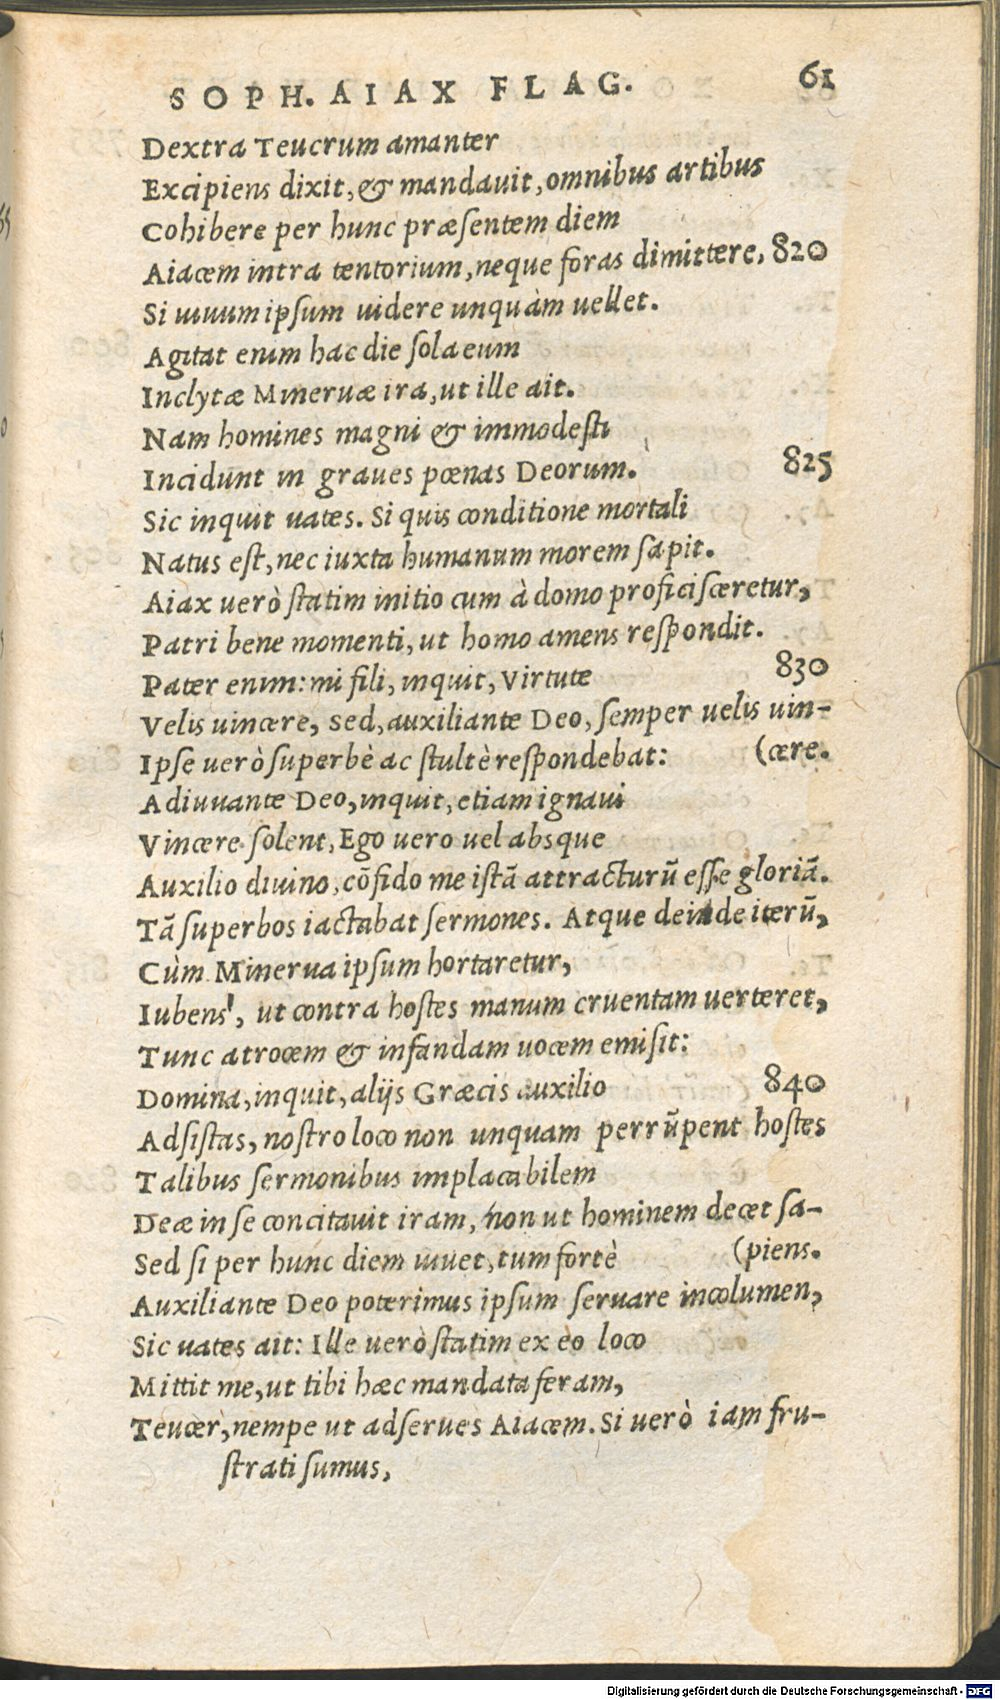 SOPH. AIAX FLAG. 61
Dextra Teucrum amanter
Excipiens dixit, & mandauit, omnibus artibus
Cohibere per hunc præſentem diem
Aiacem intra tentorium, neque foras dimittere, 820
Si uiuum ipſum uidere unquàm uellet.
Agitat enim hac die ſola eum
Inclytæ Mineruæ ira, ut ille ait.
Nam homines magni & immodeſti
Incidunt in graues pœnas Deorum. 825
Sic inquit uates. Si quis conditione mortali
Natus eſt, nec iuxta humanum morem ſapit.
Aiax uerò ſtatim initio cum à domo proficiſceretur,
Patri bene momenti, ut homo amens reſpondit.
Pater enim: mi fili, inquit, Virtute 830
Velis uincere, sed, auxiliante Deo, ſemper uelis uin-
Ipſe uerò ſuperbè ac ſtultè reſpondebat: (cere.
Adiuuante Deo, inquit, etiam ignaui
Vincere ſolent, Ego uero uel absque
Auxilio diuino, cõfido me iſtã attracturũ eſſe gloriã.
Tã ſuperbos iactabat ſermones. Atque deinde iterũ,
Cùm Minerua ipſum hortaretur,
Iubens, ut contra hoſtes manum cruentam uerteret,
Tunc atrocem & infandam uocem emiſit:
Domina, inquit, alijs Græcis auxilio 840
Adſiſtas, noſtro loco non unquam perrũpent hoſtes
Talibus ſermonibus implacabilem
Deæ in ſe concitauit iram, non ut hominem decet ſa-
Sed ſi per hunc diem uiuet, tum fortè (piens.
Auxiliante Deo poterimus ipſum ſeruare incolumen,
Sic uates ait: Ille uerò ſtatim ex eo loco
Mittit me, ut tibi hæc mandata feram,
Teucer, nempe ut adſerues Aiacem. Si uerò iam fru-
ſtrati ſumus,
Digitalisierung gefördert durch die Deutsche Forschungsgemeinschaft - DFG